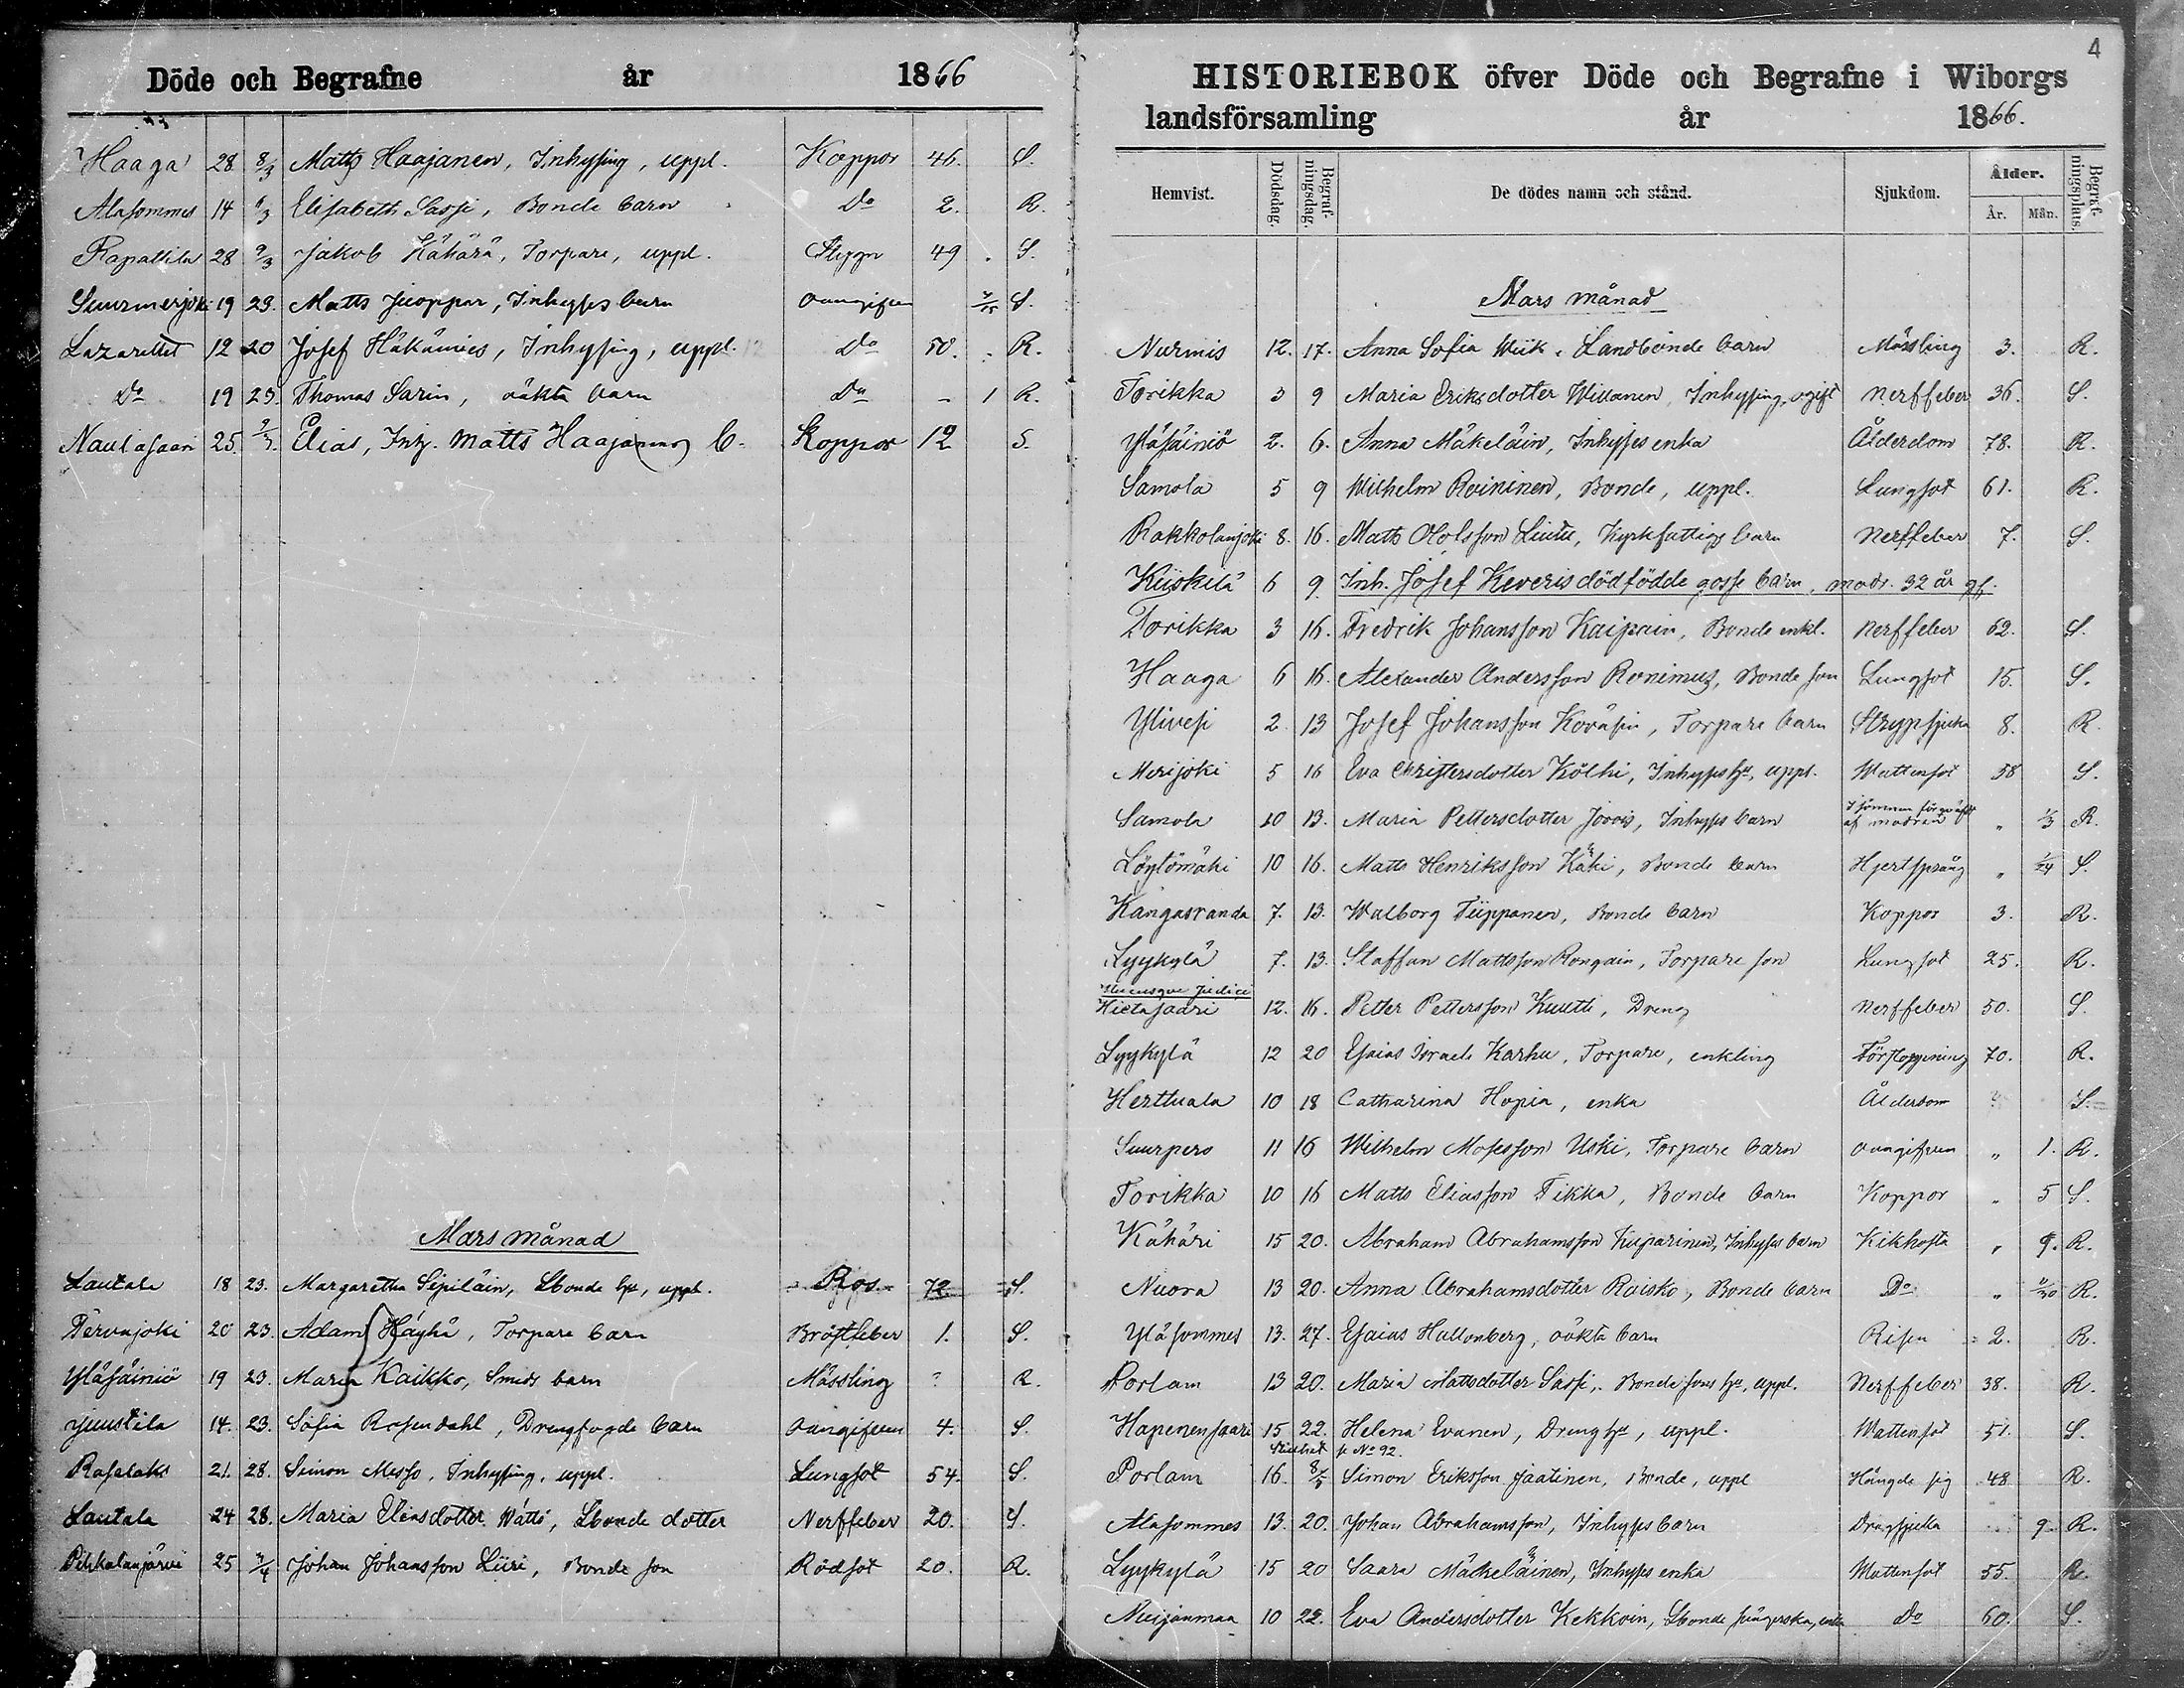 Döde och Begrafne år 1866
Haaga 28 8/3 Matts Haajanen, Inhysing, uppl. Koppor 46. S.
Alasommes 14 6/3 Elisabeth Sassi, Bonde barn Do 2. R.
Rapattila 28 9/3 Jakob Kähärä, Torpare, uppl. Stygn 49 S.
Suurmerjoki 19 23. Matts Juoppar, Inhyses barn oangifven S.
Lazarettet 12 20 Josef Häkämies, Inhysing, uppl. Do 50. R.
Do 19 23. Thomas Sarin, oäkta barn Do - 1 R.
Naulasaari 25. Elias, Inh. Matts Haajanens b. Koppor 12 S.
Mars månad
Lautala 18 23. Margaretha Sipiläin, Lbonde hu, uppl. Ros 72 S.
Tervajoki 20 23. Adam Häyhä, Torpare barn Bröstfeber 1. S.
Yläsäiniö 19 23. Maria Kaikko, Smeds barn Mässling ? R.
Juustila 14. 23. Sofia Rosendahl, Drengfogde barn oangifven 4. S.
Rasalaks 21. 28. Simon Messo, Inhysing, uppl. Lungsot 54. S.
Lautala 24 28. Maria Eliasdotter Wättö, Lbonde dotter Nerffeber 20. S.
Pihkalanjärvi 25 Johan Johansson Liiri, Bonde son Rödsot 20. R.
4
HISTORIEBOK öfver Döde och Begrafne i Wiborgs
landsförsamling år 1866.
Hemvist. Dödsdag. Begrafningsdag. De dödes namn och stånd. Sjukdom. Ålder. År. Mån. Begrafningsplats.
Mars månad
Nurmis 12. 17. Anna Sofia Wiik, Landbonde barn Mässling 3. R.
Torikka 3 9 Maria Eriksdotter Willanen, Inhysing, ogift Nerffeber 36. S.
Yläsäiniö 2. 6. Anna Mäkeläin, Inhyses enka Ålderdom 78. R.
Samola 5 9 Wilhelm Roininen, Bonde, uppl. Lungsot 61. R.
Rakkolanjoki 8. 16. Matts Olofsson Liutu, Kyrkfattigs barn Nerffeber 7. S.
Kiiskilä 6 9. Inh. Josef Keveris dödfödde gosse barn, modr. 32 år gl.
Torikka 3 16. Fredrik Johansson Kaipain, Bonde enkl. Nerffeber 62. S.
Haaga 6 16. Alexander Andersson Ronimus, Bonde son Lungsot 15. S.
Ylivesi 2. 13 Josef Johansson Koväsin, Torpare barn Strypsjuka 8. R.
Merijoki 5 16 Eva Christersdotter Kölhi, Inhyses hu, uppl. Wattensot 58 S.
Samola 10 13. Maria Pettersdotter Joovis, Inhyses barn I sömnen förqväfd af modren " 1/3 R.
Löytömäki 10 16. Matts Henriksson Käki, Bonde barn Hjertspräng " S.
Kangasranda 7. 13. Walborg Tiippanen, Bonde barn Koppor 3. R.
Lyykylä 7. 13. Staffan Mattsson Rongain, Torpare son Lungsot 25. R.
Hietasaari 12. 16. Petter Pettersson Kuutti, Dreng Nerffeber 50. S.
Lyykylä 12 20 Esaias Israels Karhu, Torpare, enkling Förstoppning 70. R.
Herttuala 10 18 Catharina Hopia, enka Ålderdom S.
Suurpero 11 16 Wilhelm Mosesson Uski, Torpare barn oangifven " 1. R.
Torikka 10 16 Matts Eliasson Tikka, Bonde barn Koppor " 5 S.
Kähäri 15 20. Abraham Abrahamsson Kuparinen, Inhyses barn Kikhosta " 9. R.
Nuora 13 20. Anna Abrahamsdotter Raisko, Bonde barn Do " R.
Yläsommes 13. 27. Esaias Hallonberg, oäkta barn Risen 2. R.
Porlam 13 20. Maria Mattsdotter Sassi, Bonde sons hu, uppl. Nerffeber 38. R.
Hapenensaari 15 22. Helena Evanen, Dreng hu, uppl. Wattensot 51. S.
Porlam 16. No 92. Simon Eriksson Jaatinen, Bonde, uppl Hängde sig 48 R.
Alasommes 13. 20. Johan Abrahamsson, Inhyses barn Dragsjuka 9. R.
Lyykylä 15 20 Saara Mäkeläinen, Inhyses enka Wattensot 55. R.
Nuijanmaa 10 22. Eva Andersdotter Kekkoin, Lbonde enka Do 60. S.